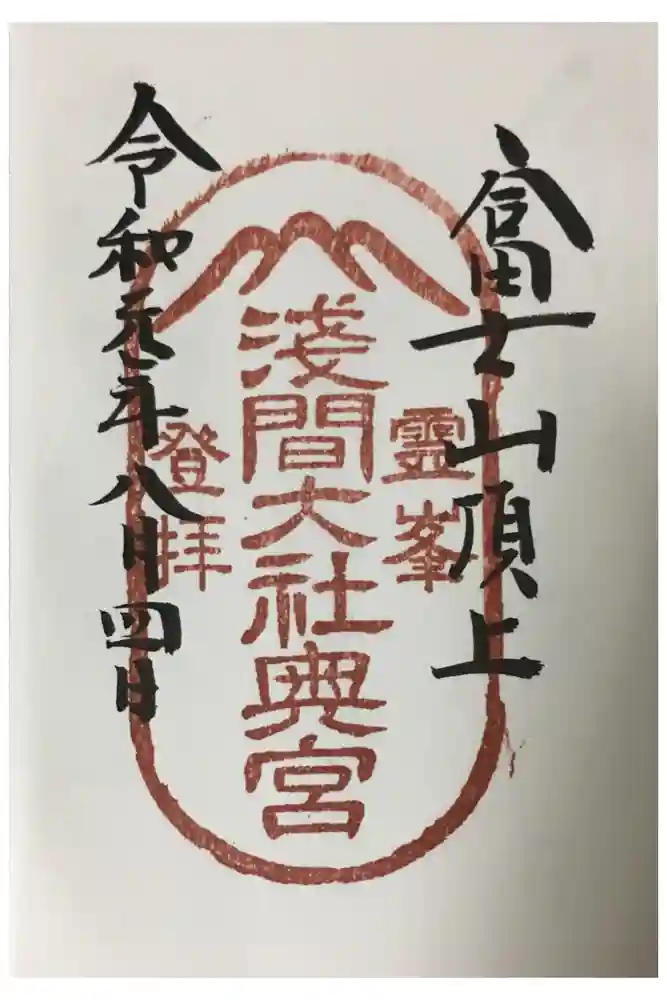 富士山頂上
霊峯
淺間大社奥宮
登拝
令和元年八月四日